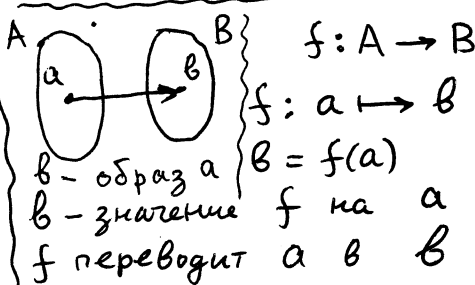 A B
a в
f : A → B
f : a ↦ в
в = f(a)
в – образ a
в – значение f на a
f переводит a в в